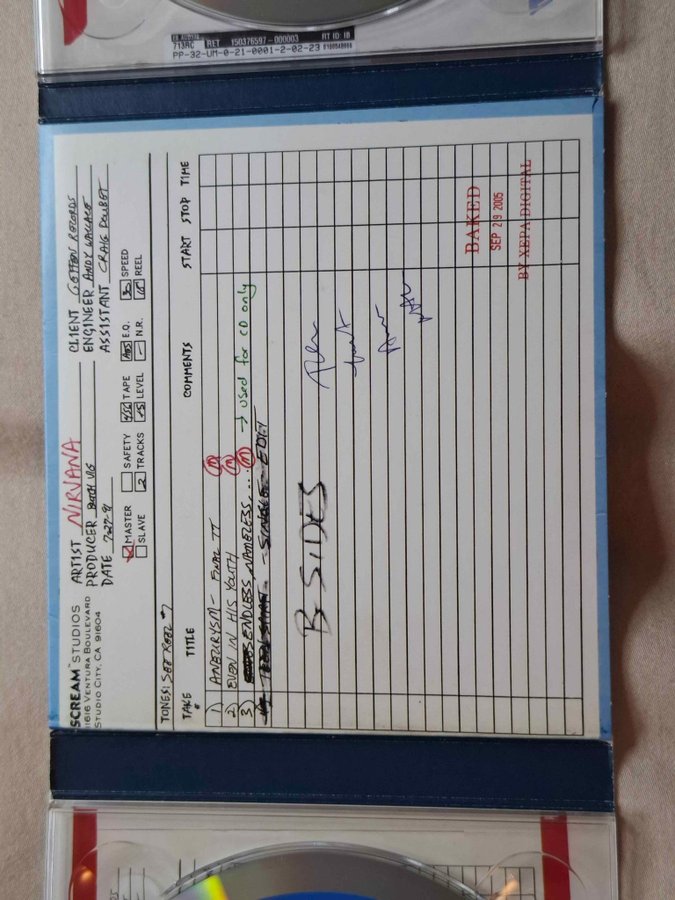 713AC RET 150376597-000003 RT ID: IB
PP-32-UM-0-21-0001-2-02-23
SCREAM STUDIOS
11616 VENTURA BOULEVARD
STUDIO CITY, CA. 91604
ARTIST NIRVANA
PRODUCER BUTCH VIG
DATE
CLIENT GEFFEN RECORDS
ENGINEER ANDY WALLACE
ASSISTANT CRAIG DOUBET
MASTER SAFETY 456 TAPE E.Q. 30 SPEED
SLAVE 2 TRACKS +5 LEVEL — N.R. REEL
TONES: SEE REEL #7
TAKE # TITLE COMMENTS START STOP TIME
1) ANEURYSM - FINAL TT M
2) EVEN IN HIS YOUTH M
3) ENDLESS, NAMELESS... M → used for CD only
- SINGLE EDIT
B SIDES
BAKED
SEP 29 2005
BY XEPA DIGITAL